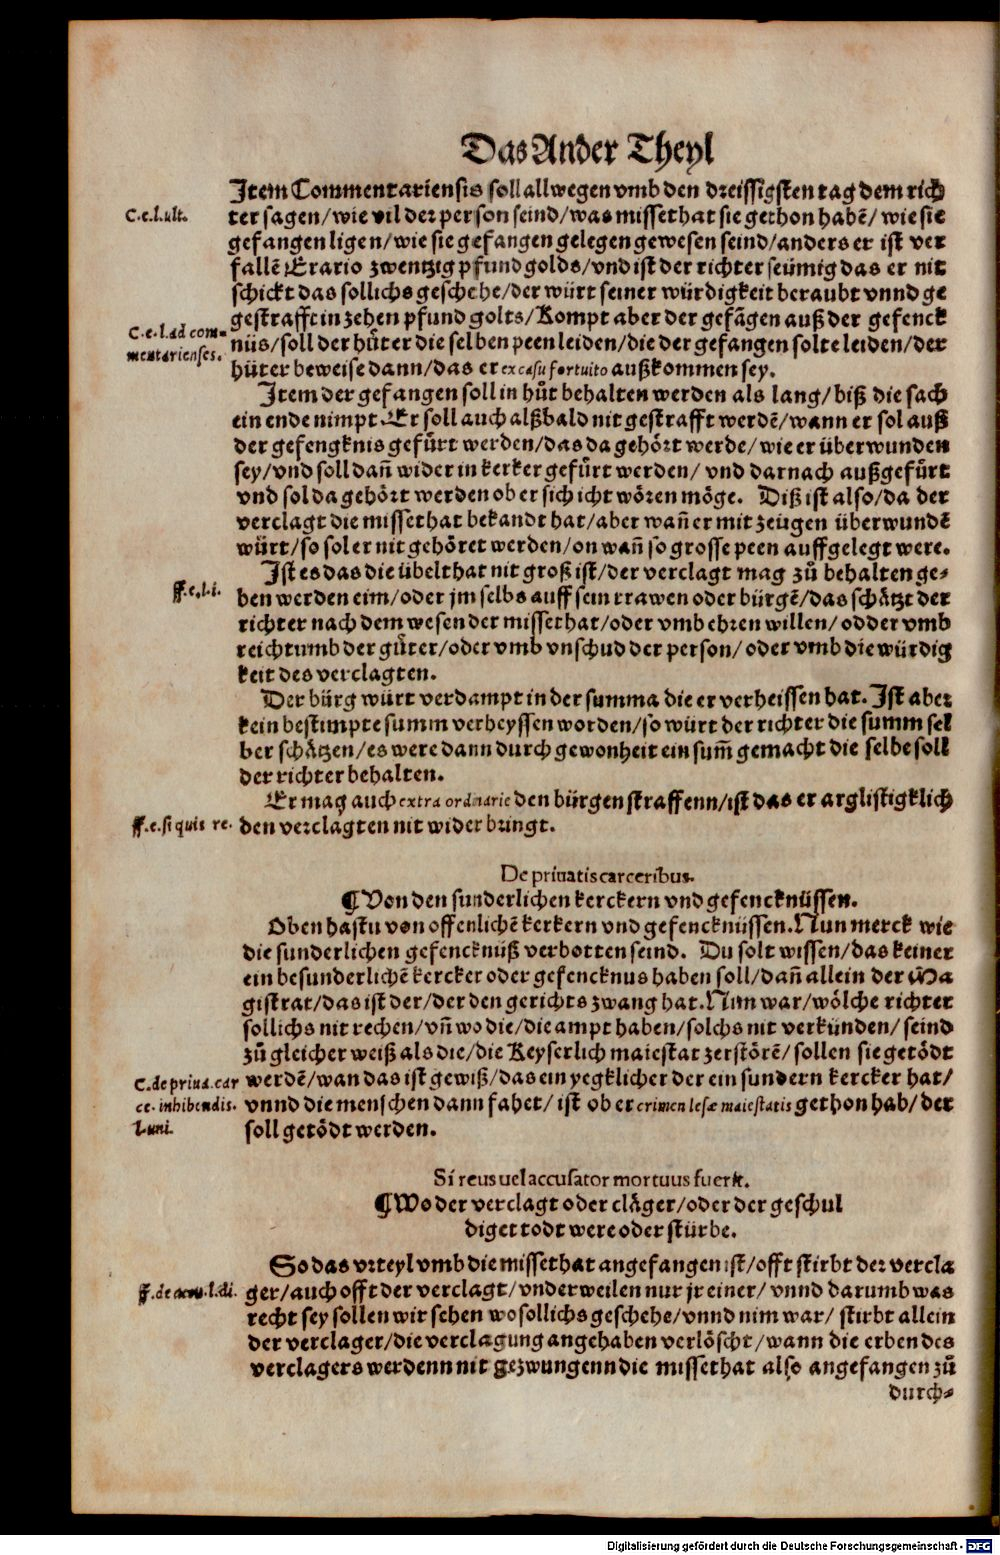 Das Ander Theyl
Item Commentariensis soll allwegen vmb den dreissigsten tag dem rich
C.e.l.ult.
ter sagen/wie vil der person seind/was missethat sie gethon habē/ wie sie
gefangen ligen/wie sie gefangen gelegen gewesen seind/anders er ist ver
fallē Erario zwentzig pfund golds/vnd ist der richter seümig das er nit
schickt das sollichs geschehe/der würt seiner würdigkeit beraubt vnnd ge
gestrafft in zehen pfund golts/Kompt aber der gefāgen auß der gefenck
C.e.l.ad com-
mentarienses.
nüs/soll der hůter die selben peen leiden/die der gefangen solte leiden/der
hüter beweise dann/das er ex casu fortuito außkommen sey.
Item der gefangen soll in hůt behalten werden als lang/biß die sach
ein ende nimpt. Er soll auch alßbald nit gestrafft werdē/wann er sol auß
der gefengknis gefůrt werden/das da gehört werde/wie er überwunden
sey/vnd soll dañ wider in kerker gefůrt werden/ vnd darnach außgefůrt
vnd sol da gehört werden ob er sich icht wören möge. Diß ist also/da der
verclagt die missethat bekandt hat/aber wañ er mit zeügen überwundē
würt/so sol er nit gehöret werden/on wañ so grosse peen auffgelegt were.
Ist es das die übelthat nit groß ist/der verclagt mag zů behalten ge-
ff.e.l.i.
ben werden eim/oder jm selbs auff sein trawen oder bürgē/das schätzt der
richter nach dem wesen der missethat/oder vmb ehren willen/ odder vmb
reichtumb der gůter/oder vmb vnschud der person/ oder vmb die würdig
keit des verclagten.
Der bürg würt verdampt in der summa die er verheissen hat. Ist aber
kein bestimpte summ verheyssen worden/so würt der richter die summ sel
ber schätzen/es were dann durch gewonheit ein sum̄ gemacht die selbe soll
der richter behalten.
Er mag auch extra ordinarie den bürgen straffenn/ist das er arglistigklich
ff.e.si quis re.
den verclagten nit wider bringt.
De priuatis carceribus.
¶ Von den sunderlichen kerckern vnd gefencknüssen.
Oben hastu von offenlichē kerkern vnd gefencknüssen. Nun merck wie
die sunderlichen gefencknüß verbotten seind. Du solt wissen/das keiner
ein besunderlichē kercker oder gefencknus haben soll/dañ allein der Ma
gistrat/das ist der/der den gerichts zwang hat. Nun war/wölche richter
sollichs nit rechen/vñ wo die/die ampt haben/solchs nit verkünden/ seind
zů gleicher weiß als die/die Keyserlich maiestat zerstörē/ sollen sie getödt
C.de priua.car
werdē/wan das ist gewiß/das ein yegklicher der ein sundern kercker hat/
ce. inhibendis.
vnnd die menschen dann fahet/ ist ob er crimen lesæ maiestatis gethon hab/ der
l.uni.
soll getödt werden.
Si reus uel accusator mortuus fuerit.
¶ Wo der verclagt oder cläger/oder der geschul
diget todt were oder stürbe.
So das vrteyl vmb die missethat angefangen ist/offt stirbt der vercla
ff.de accu.l.di.
ger/auch offt der verclagt/vnderweilen nur jr einer/ vnnd darumb was
recht sey sollen wir sehen wo sollichs geschehe/vnnd nim war/ stirbt allein
der verclager/die verclagung angehaben verlöscht/wann die erben des
verclagers werdenn nit gezwungenn die missethat also angefangen zů
durch-
Digitalisierung gefördert durch die Deutsche Forschungsgemeinschaft - DFG